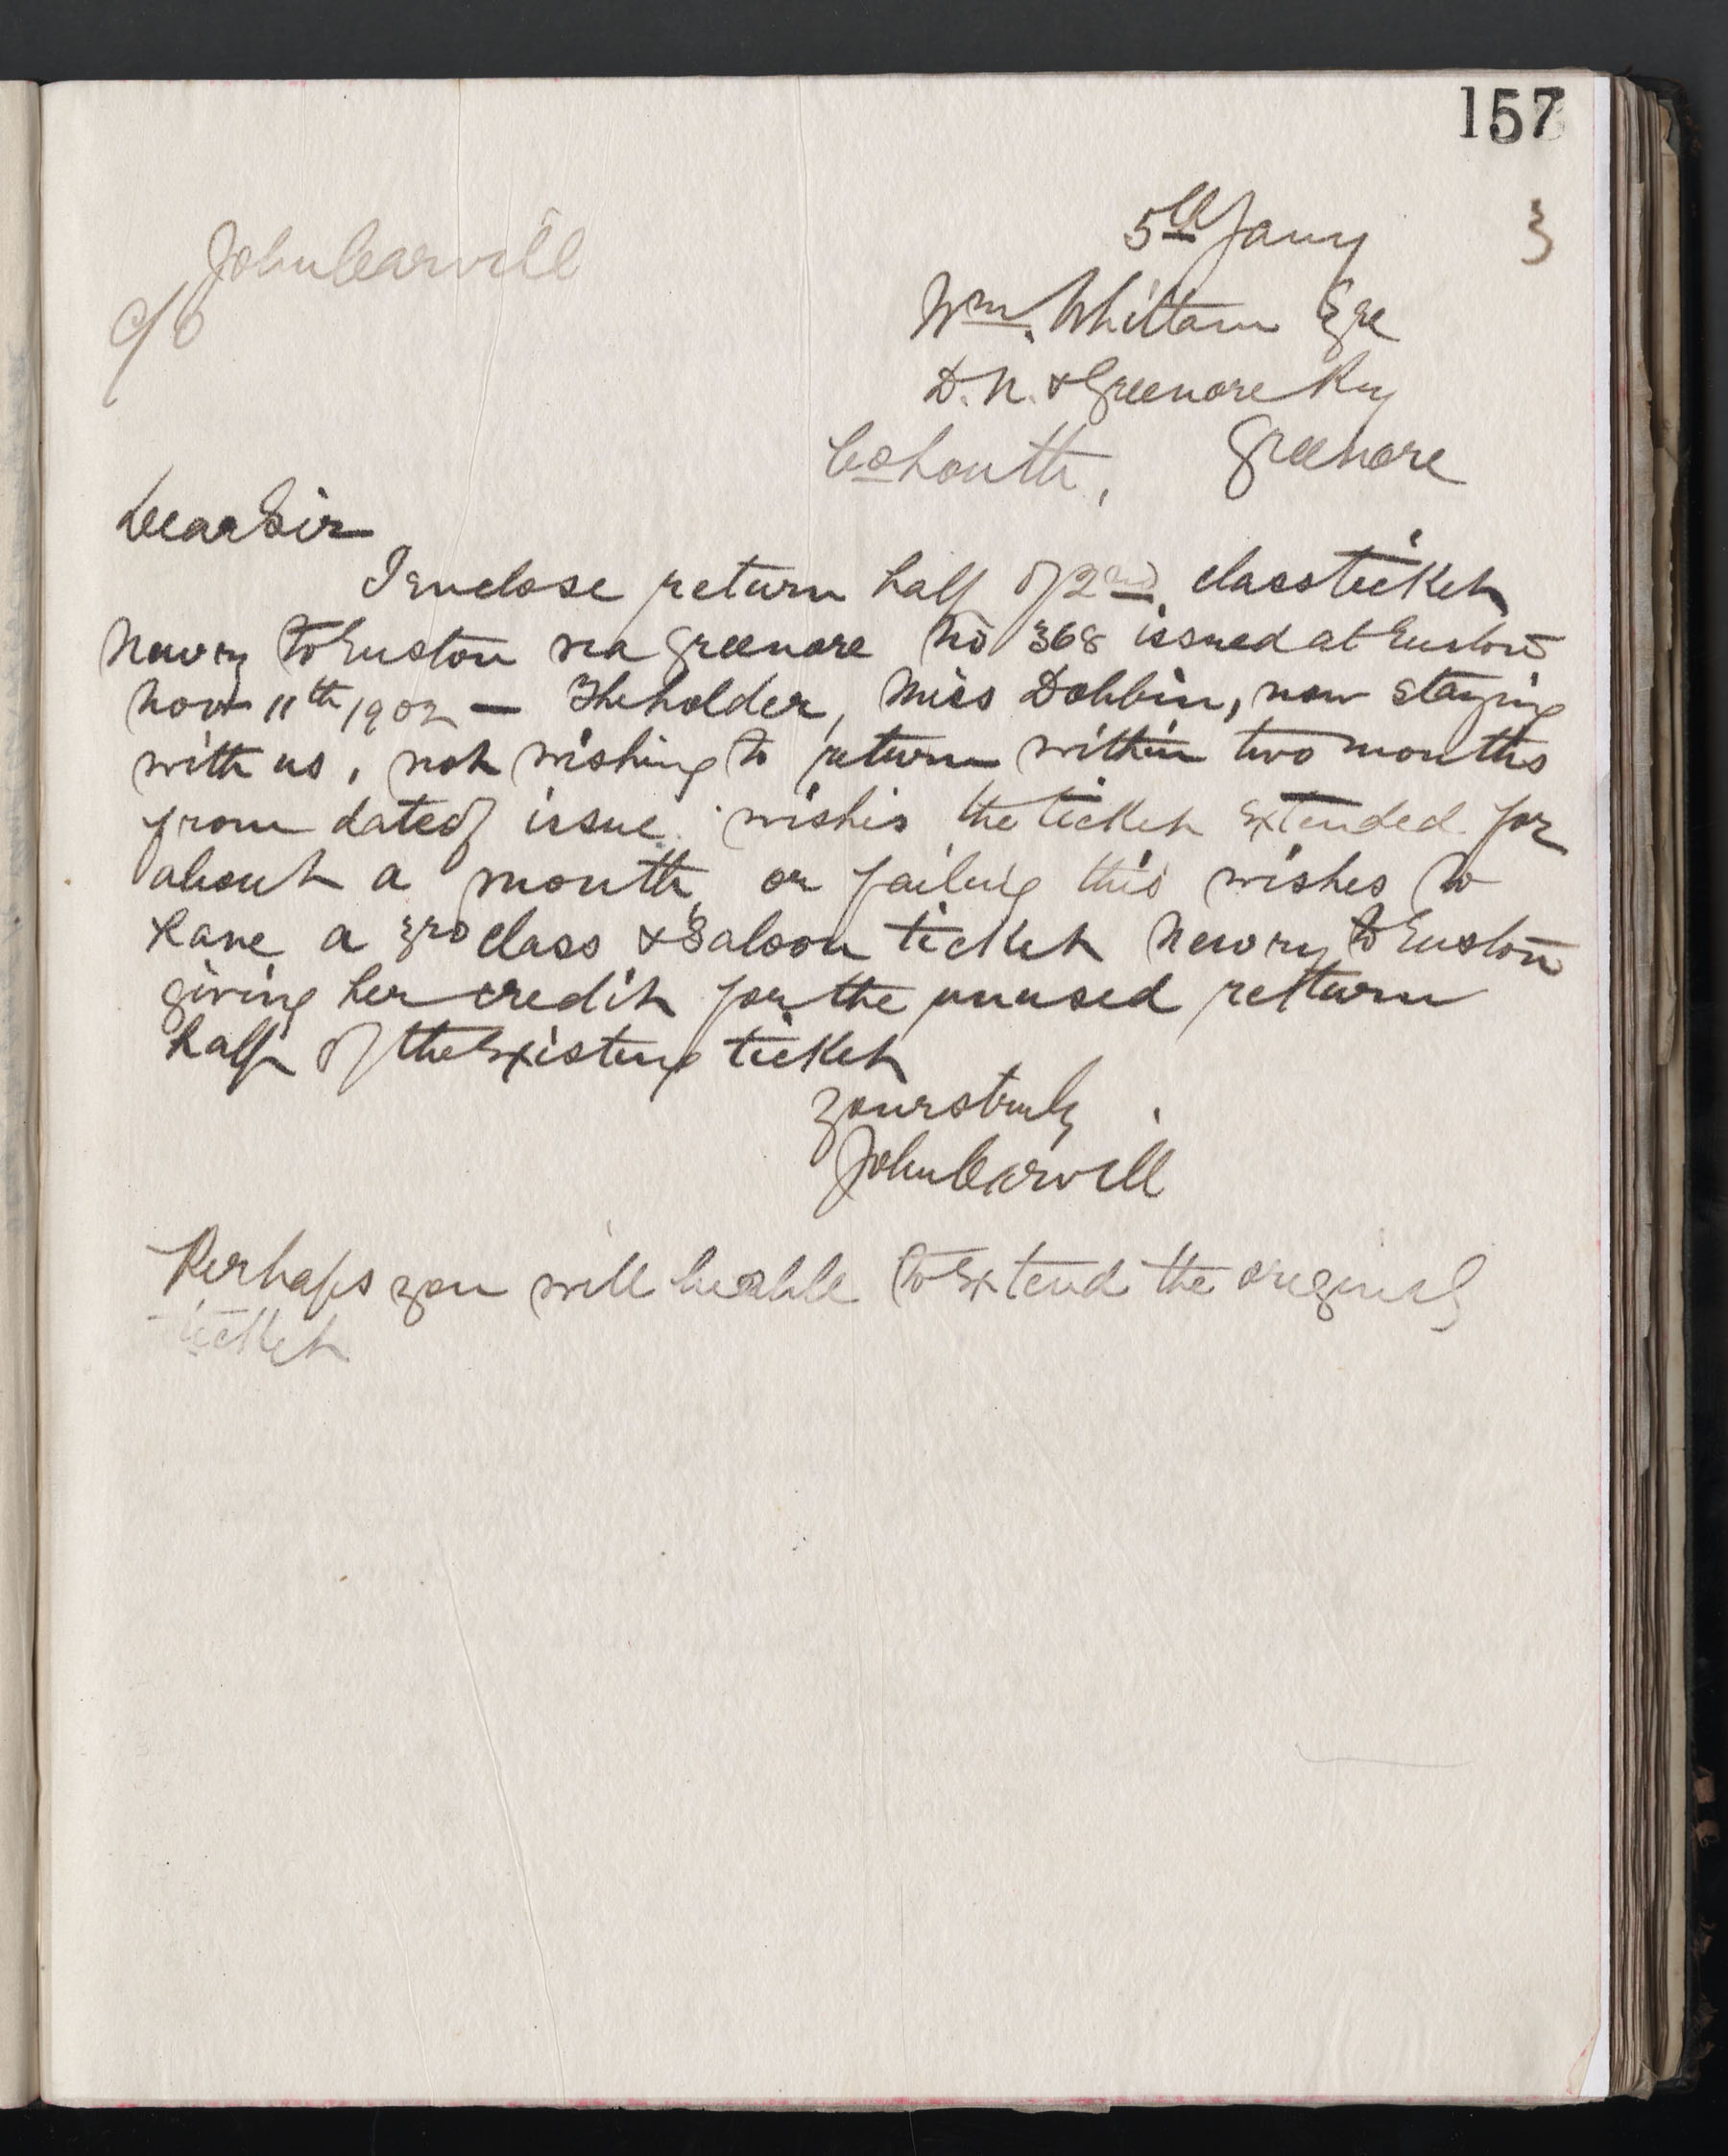 157
5th Jany 3
John Carvill
c/o
Wm. Whittam Esqe
D. N. & Greenore Ry
Co Louth, Greenore
Dear Sir
I enclose return half of 2nd class ticket
Newry to Euston via Greenore No 368 issued at Euston
Novr 11th 1902 — The holder, Miss Dobbin, now staying
with us, not wishing to return within two months
from date of issue. wishes the ticket extended for
about a month, or failing this wishes to
have a 3rd class & Saloon ticket Newry to Euston
giving her credit for the unused return
half of the existing ticket
Yours truly
John Carvill
Perhaps you will be able to extend the original
ticket